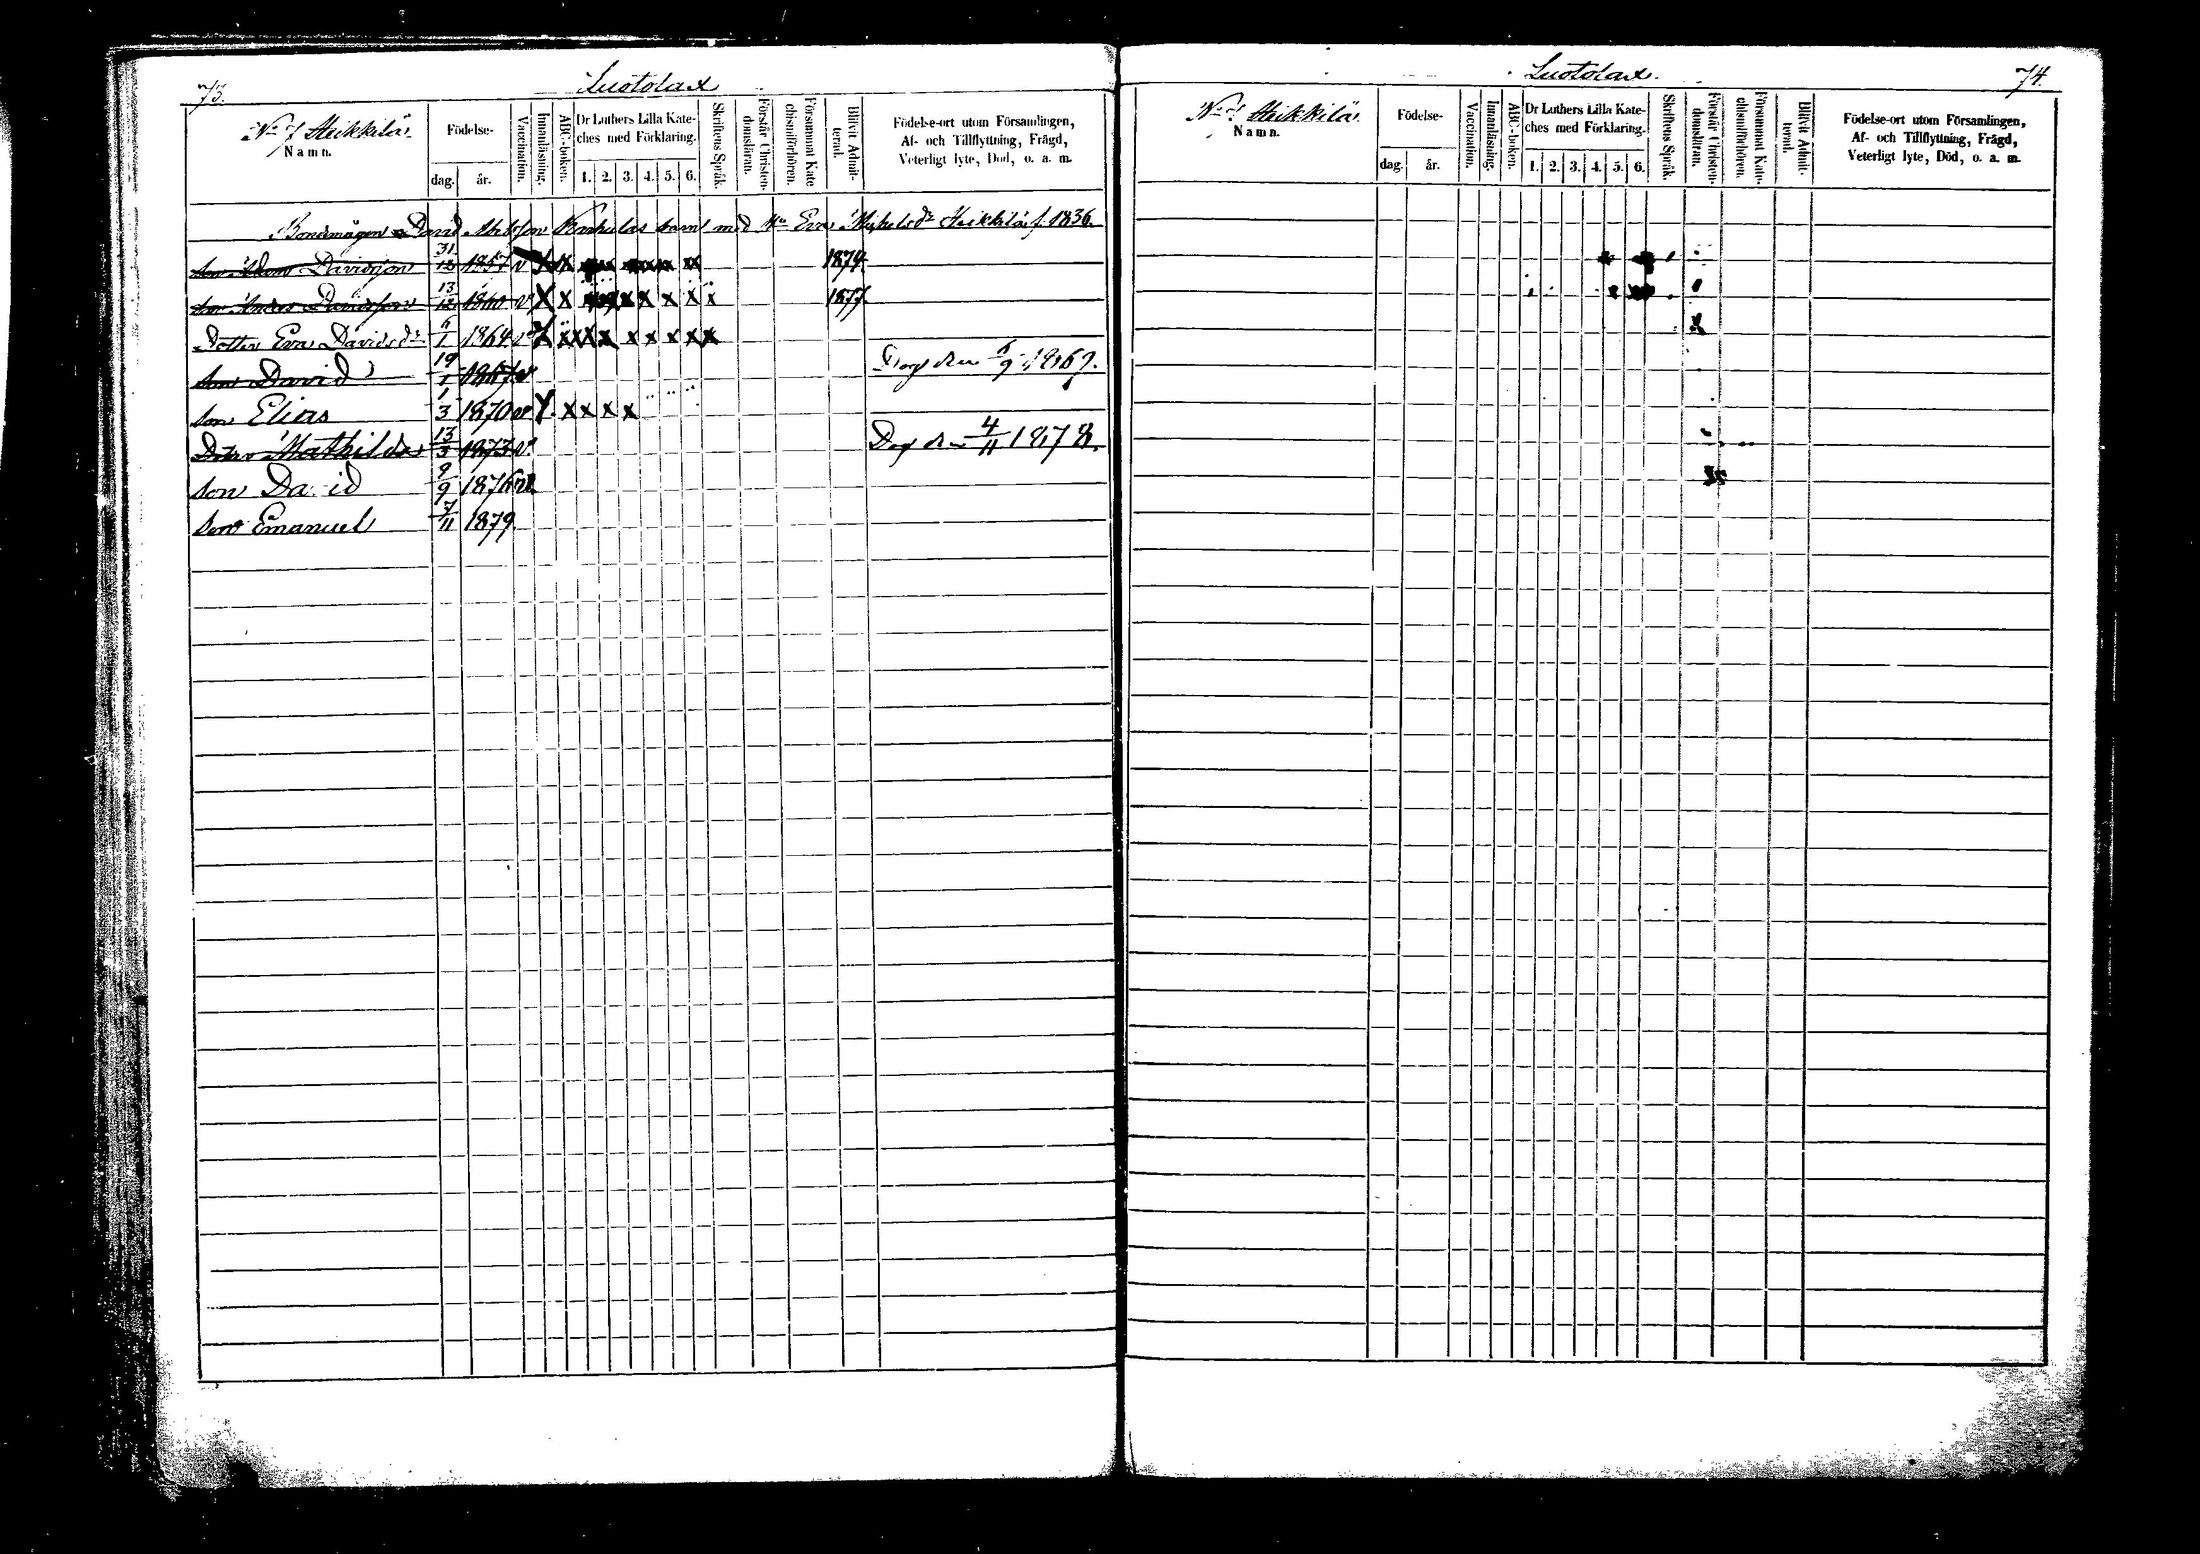 73.
Luotolax
No 7 Heikkilä.
Namn.
Födelse-
dag.
år.
Vaccination.
Innanläsning.
ABC-boken.
Dr Luthers Lilla Kate-
ches med Förklaring.
1. 2. 3. 4. 5. 6.
Skriftens Språk.
Förstår Christen-
domsläran.
Försummat Kate
chismiförhören.
Blifvit Admit-
terad.
Födelse-ort utom Församlingen,
Af- och Tillflyttning, Frägd,
Veterligt lyte, Död, o. a. m.
Bondemågen David barn med Eva Michelsdr Heikkilä f. 1836.
son Adam Davidsson 31/12 1857 v X X 1874
son Anders Davidsson 13/12 1860 v X x x x x x 1877
Dotter Eva Davidsdr 6/1 1864 v X x X x x x x x x
son David 19/1 1867 v Dog den 6/9 1869.
son Elias 1/3 1870 v X x x x x
Dotter Mathilda 13/3 1873 v Dog den 4/11 1878.
son David 9/9 1876 v
son Emanuel 7/11 1879
74.
Luotolax.
No 7 Heikkilä
Namn.
Födelse-
dag.
år.
Vaccination.
Innanläsning.
ABC-boken.
Dr Luthers Lilla Kate-
ches med Förklaring.
1. 2. 3. 4. 5. 6.
Skriftens Språk.
Förstår Christen-
domsläran.
Försummat Kate-
chismiförhören.
Blifvit Admit-
terad.
Födelse-ort utom Församlingen,
Af- och Tillflyttning, Frägd,
Veterligt lyte, Död, o. a. m.